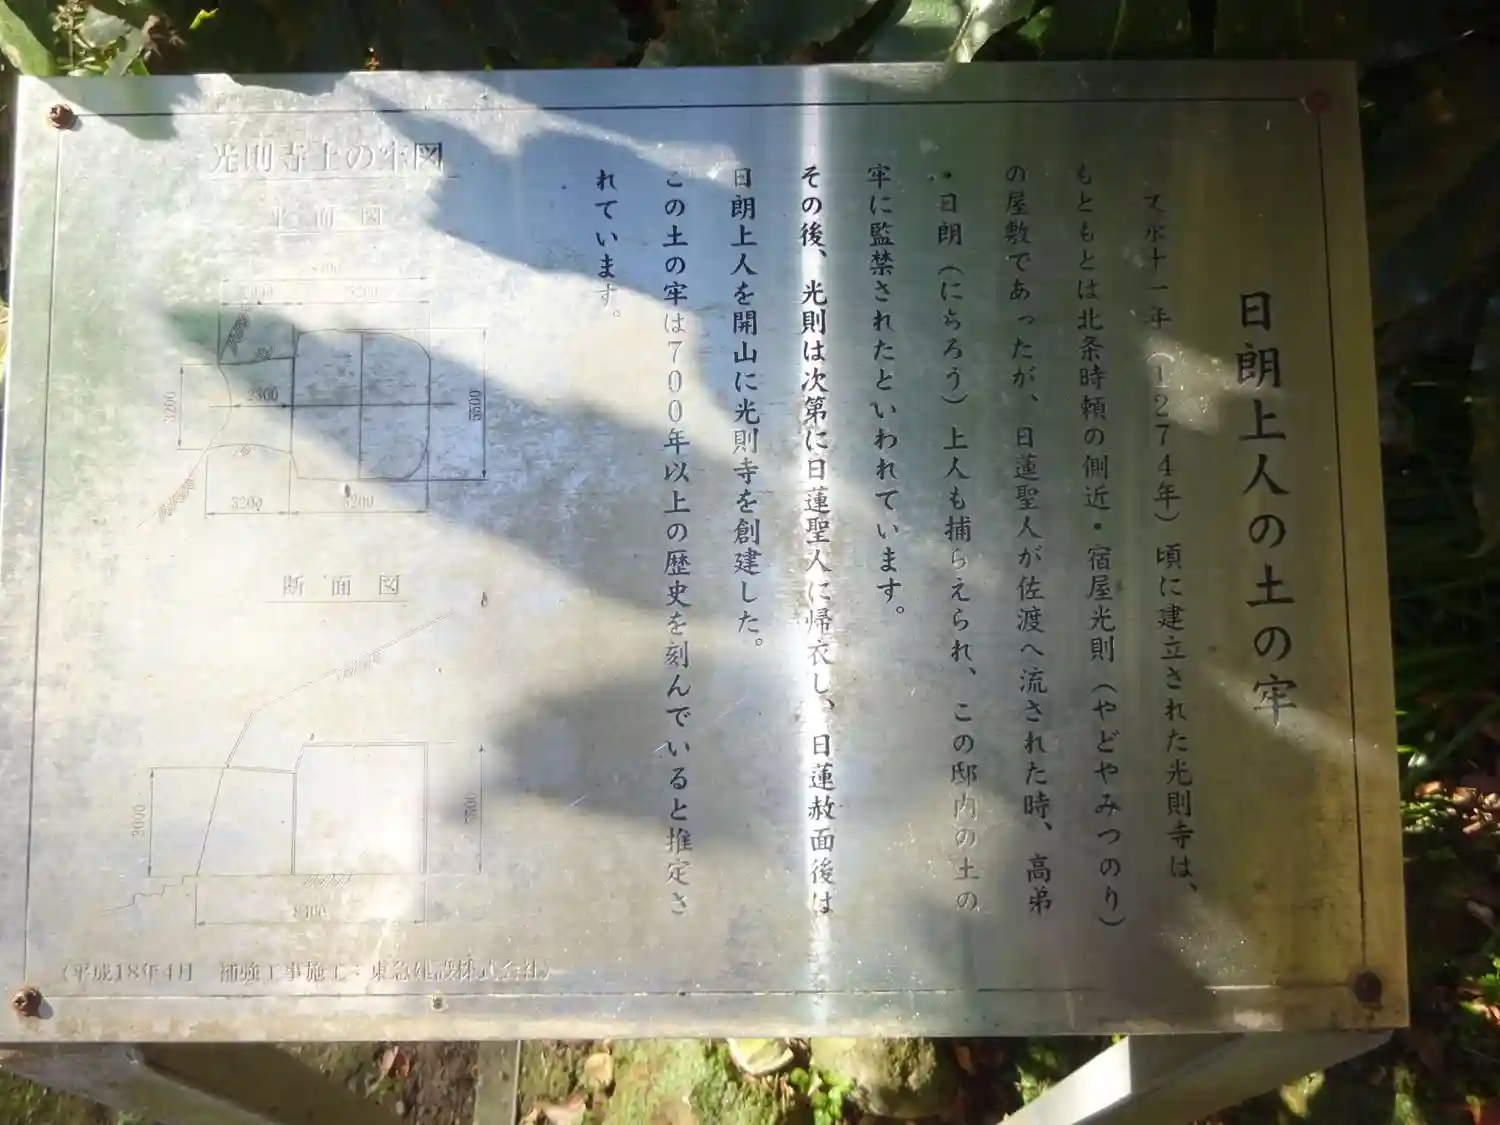 日朗上人の土の牢
文永十一年（1274年）頃に建立された光則寺は、
もともとは北条時頼の側近・宿屋光則（やどやみつのり）
の屋敷であったが、日蓮聖人が佐渡へ流された時、高弟
・日朗（にちろう）上人も捕らえられ、この邸内の土の
牢に監禁されたといわれています。
その後、光則は次第に日蓮聖人に帰衣し、日蓮赦面後は
日朗上人を開山に光則寺を創建した。
この土の牢は700年以上の歴史を刻んでいると推定さ
れています。
光則寺土の牢図
平面図
5200
3200
2300
3200
5200
断面図
3000
8400
（平成18年4月　補強工事施工：東急建設株式会社）